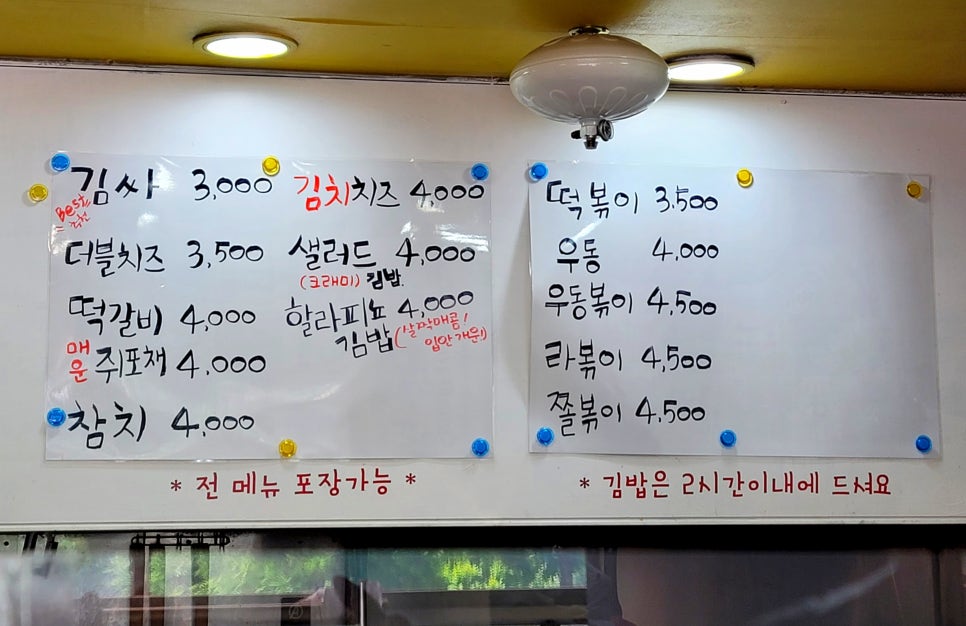 김싸 3,000
Best
추천
더블치즈 3,500
떡갈비 4,000
매운 쥐포채 4,000
참치 4,000
김치치즈 4,000
샐러드 4,000
(크래미) 김밥.
할라피뇨 4,000
김밥 (살짝매콤!
입안개운!)
* 전 메뉴 포장가능 *
떡볶이 3,500
우동 4,000
우동볶이 4,500
라볶이 4,500
쫄볶이 4,500
* 김밥은 2시간이내에 드셔요